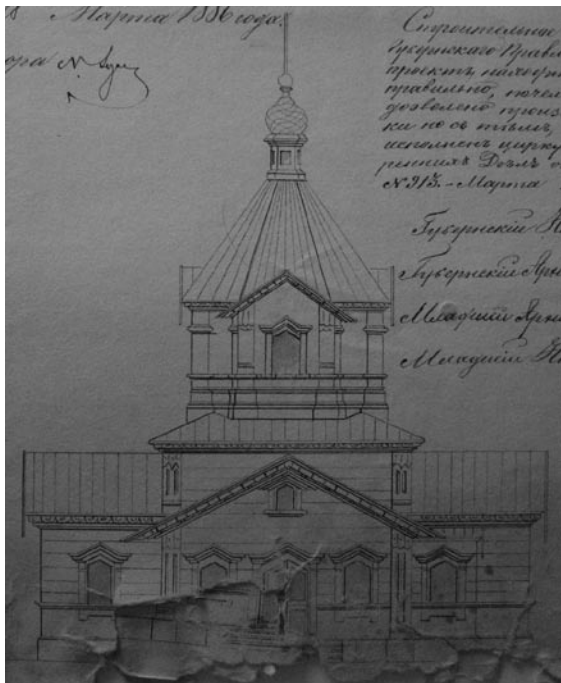 Марта 1886 года
ора
Строительное
Губернскаго Правл
проектъ находи
правильно, почем
дозволено произ
ки но съ тѣмъ,
исполненъ цирку
реннихъ Дѣлъ о
№ 913. – Марта
Губернскій
Губернскій Арх
Младшій Арх
Младшій